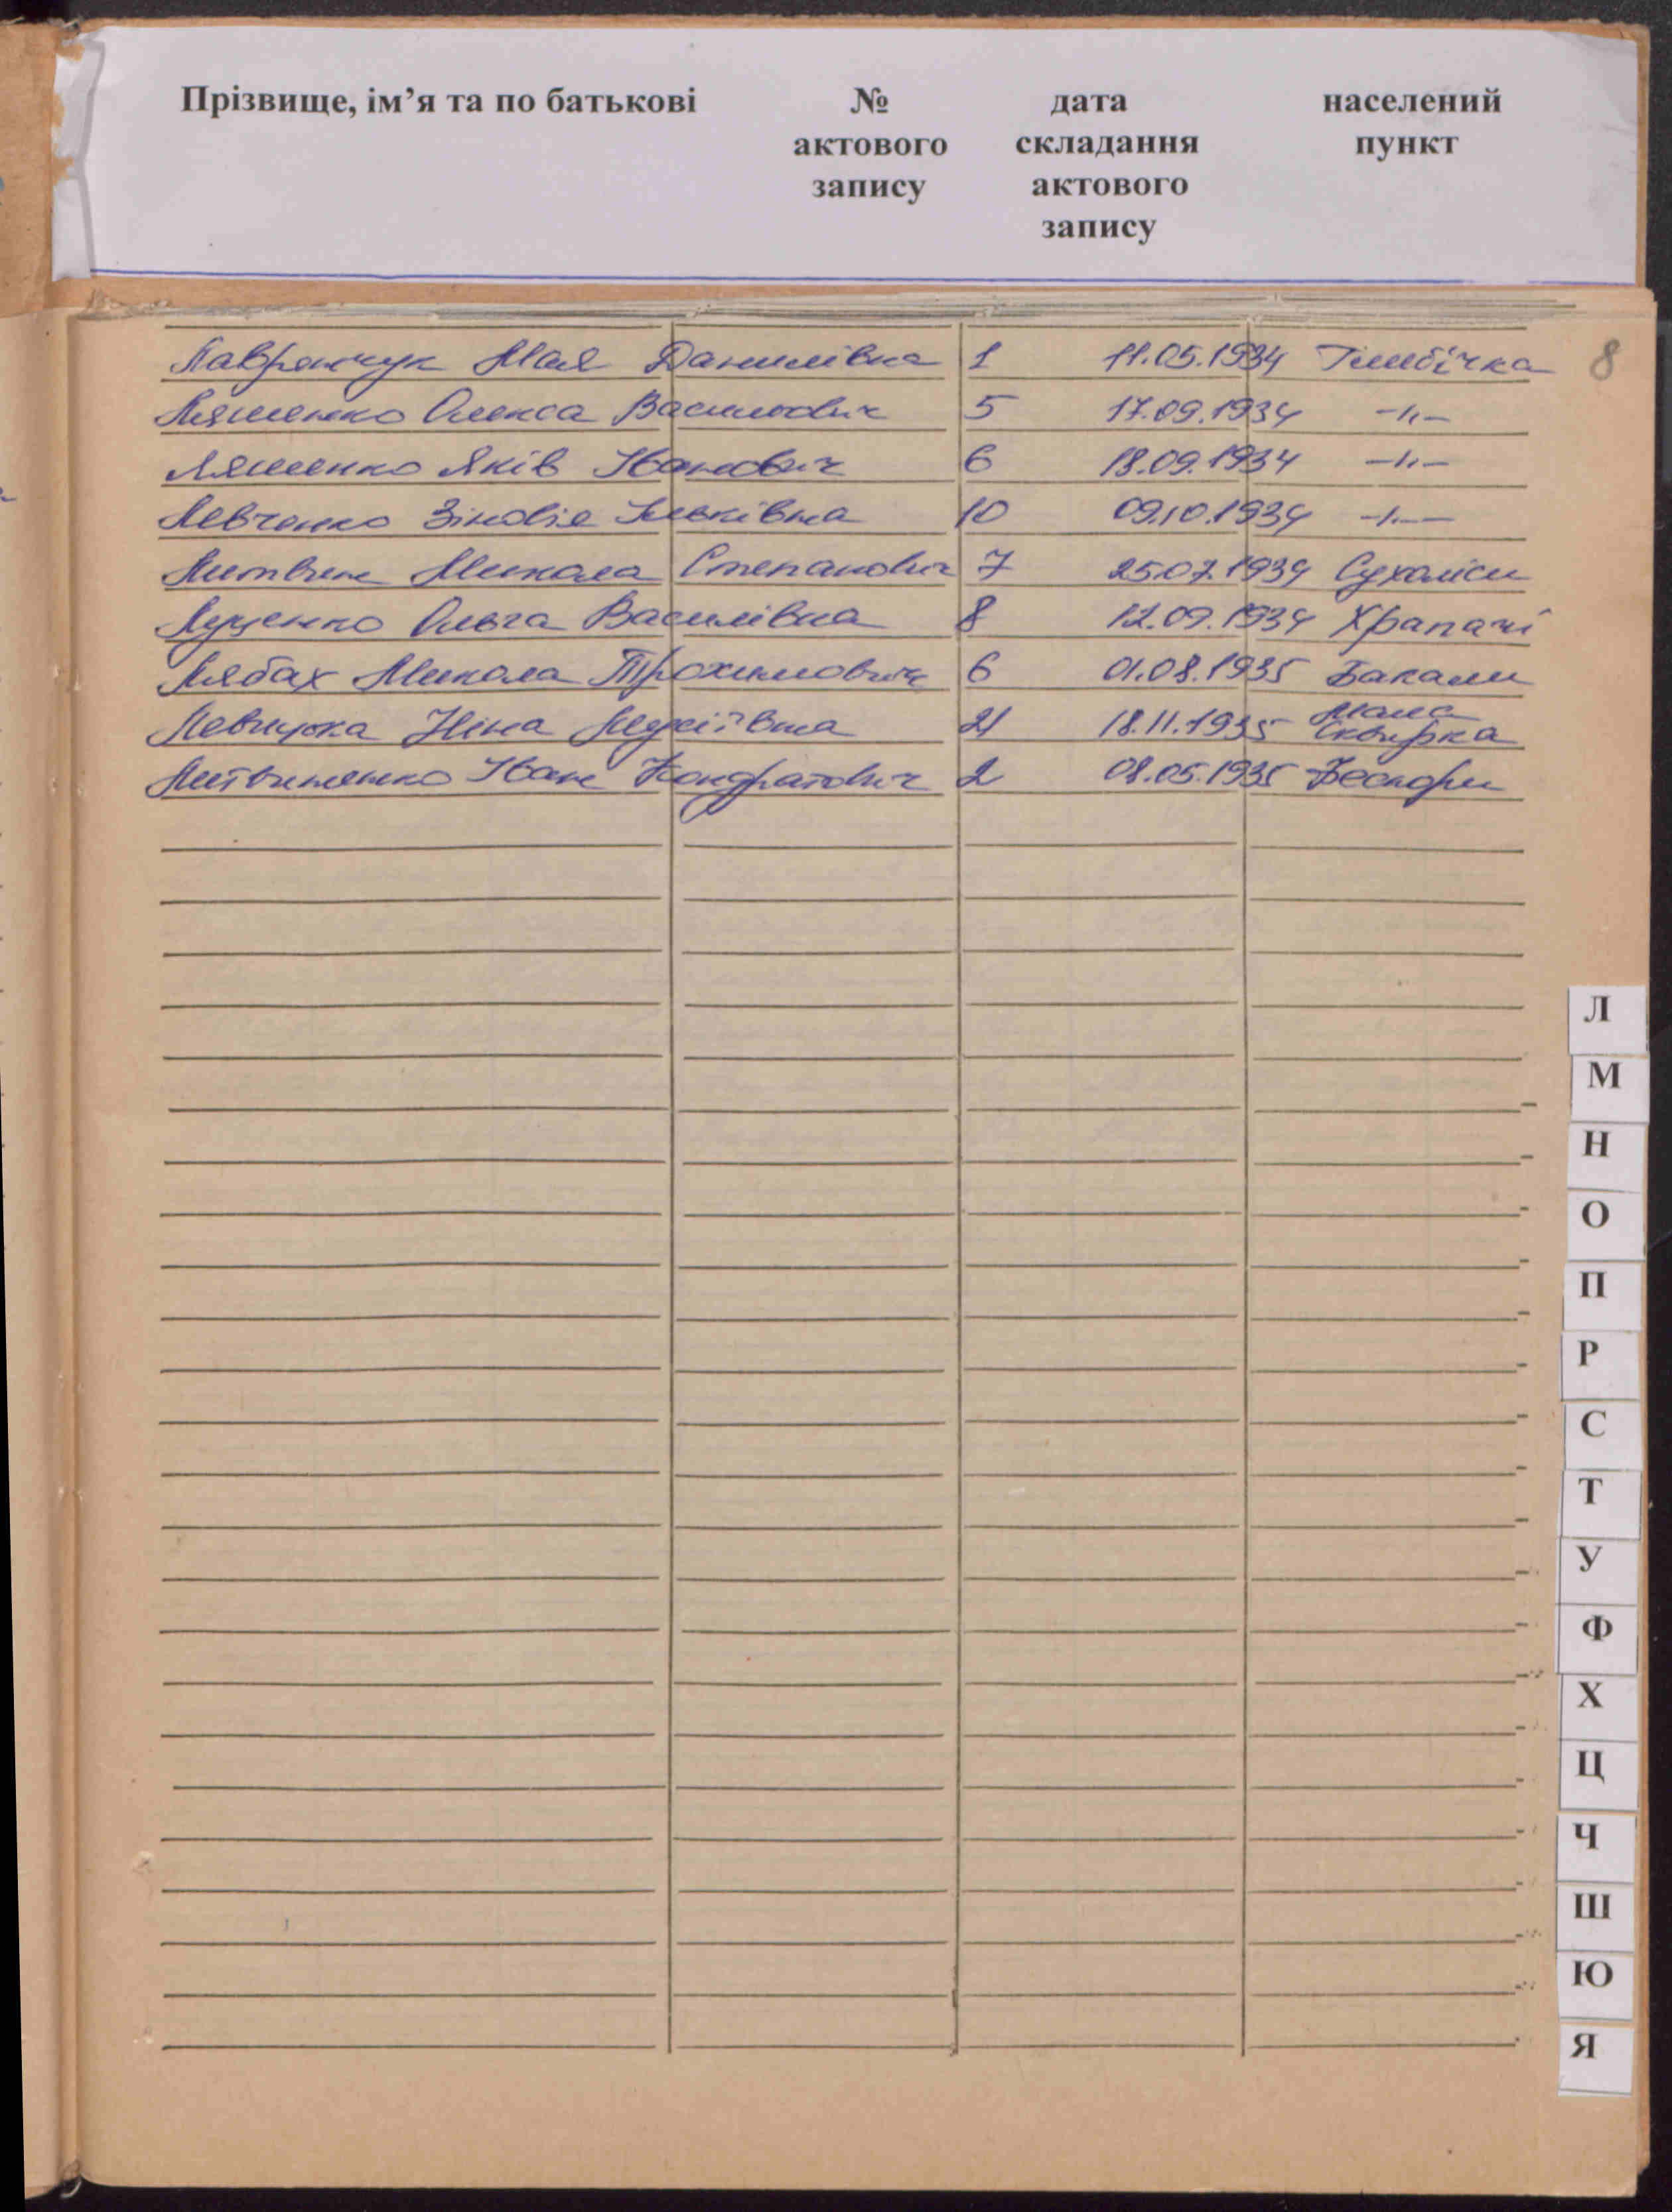 Прізвище, ім’я та по батькові № дата населений
актового складання пункт
запису актового
запису
Лавренчук Мая Данилівна 1 11.05.1934 Глибічка 8
Ляшенко Олекса Васильович 5 17.09.1934 -//-
Ляшенко Яків Іванович 6 18.09.1934 -//-
Левченко Зіновія Ільківна 10 09.10.1934 -//-
Литвин Микола Степанович 7 25.07.1934 Сухоліси
Луценко Ольга Василівна 8 12.09.1934 Храпачі
Лябах Микола Трохимович 6 01.08.1935 Бакали
Левицка Ніна 21 18.11.1935 Мала Сквирка
Литвиненко Іван Кондратович 2 08.05.1935
Л
М
Н
О
П
Р
С
Т
У
Ф
Х
Ц
Ч
Ш
Ю
Я